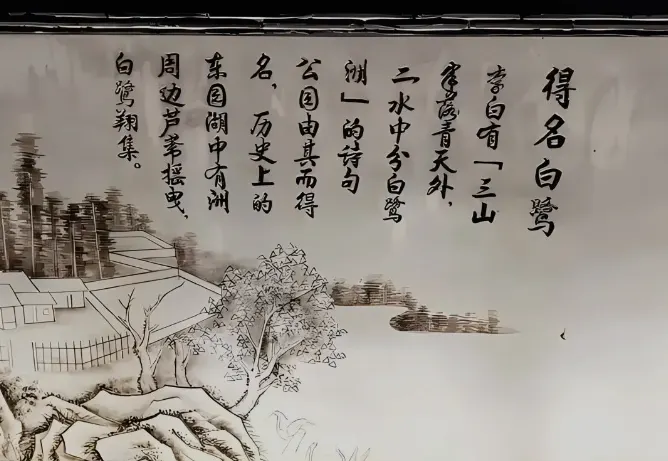 得名白鹭
李白有「三山
半落青天外,
二水中分白鹭
洲」的诗句
公园由其而得
名，历史上的
东园湖中有洲
周边芦苇摇曳,
白鹭翔集。